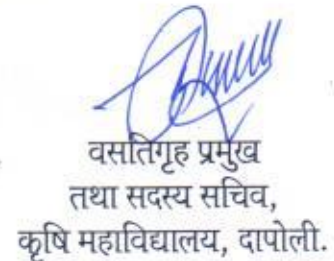 वसतिगृह प्रमुख
तथा सदस्य सचिव,
कृषि महाविद्यालय, दापोली.